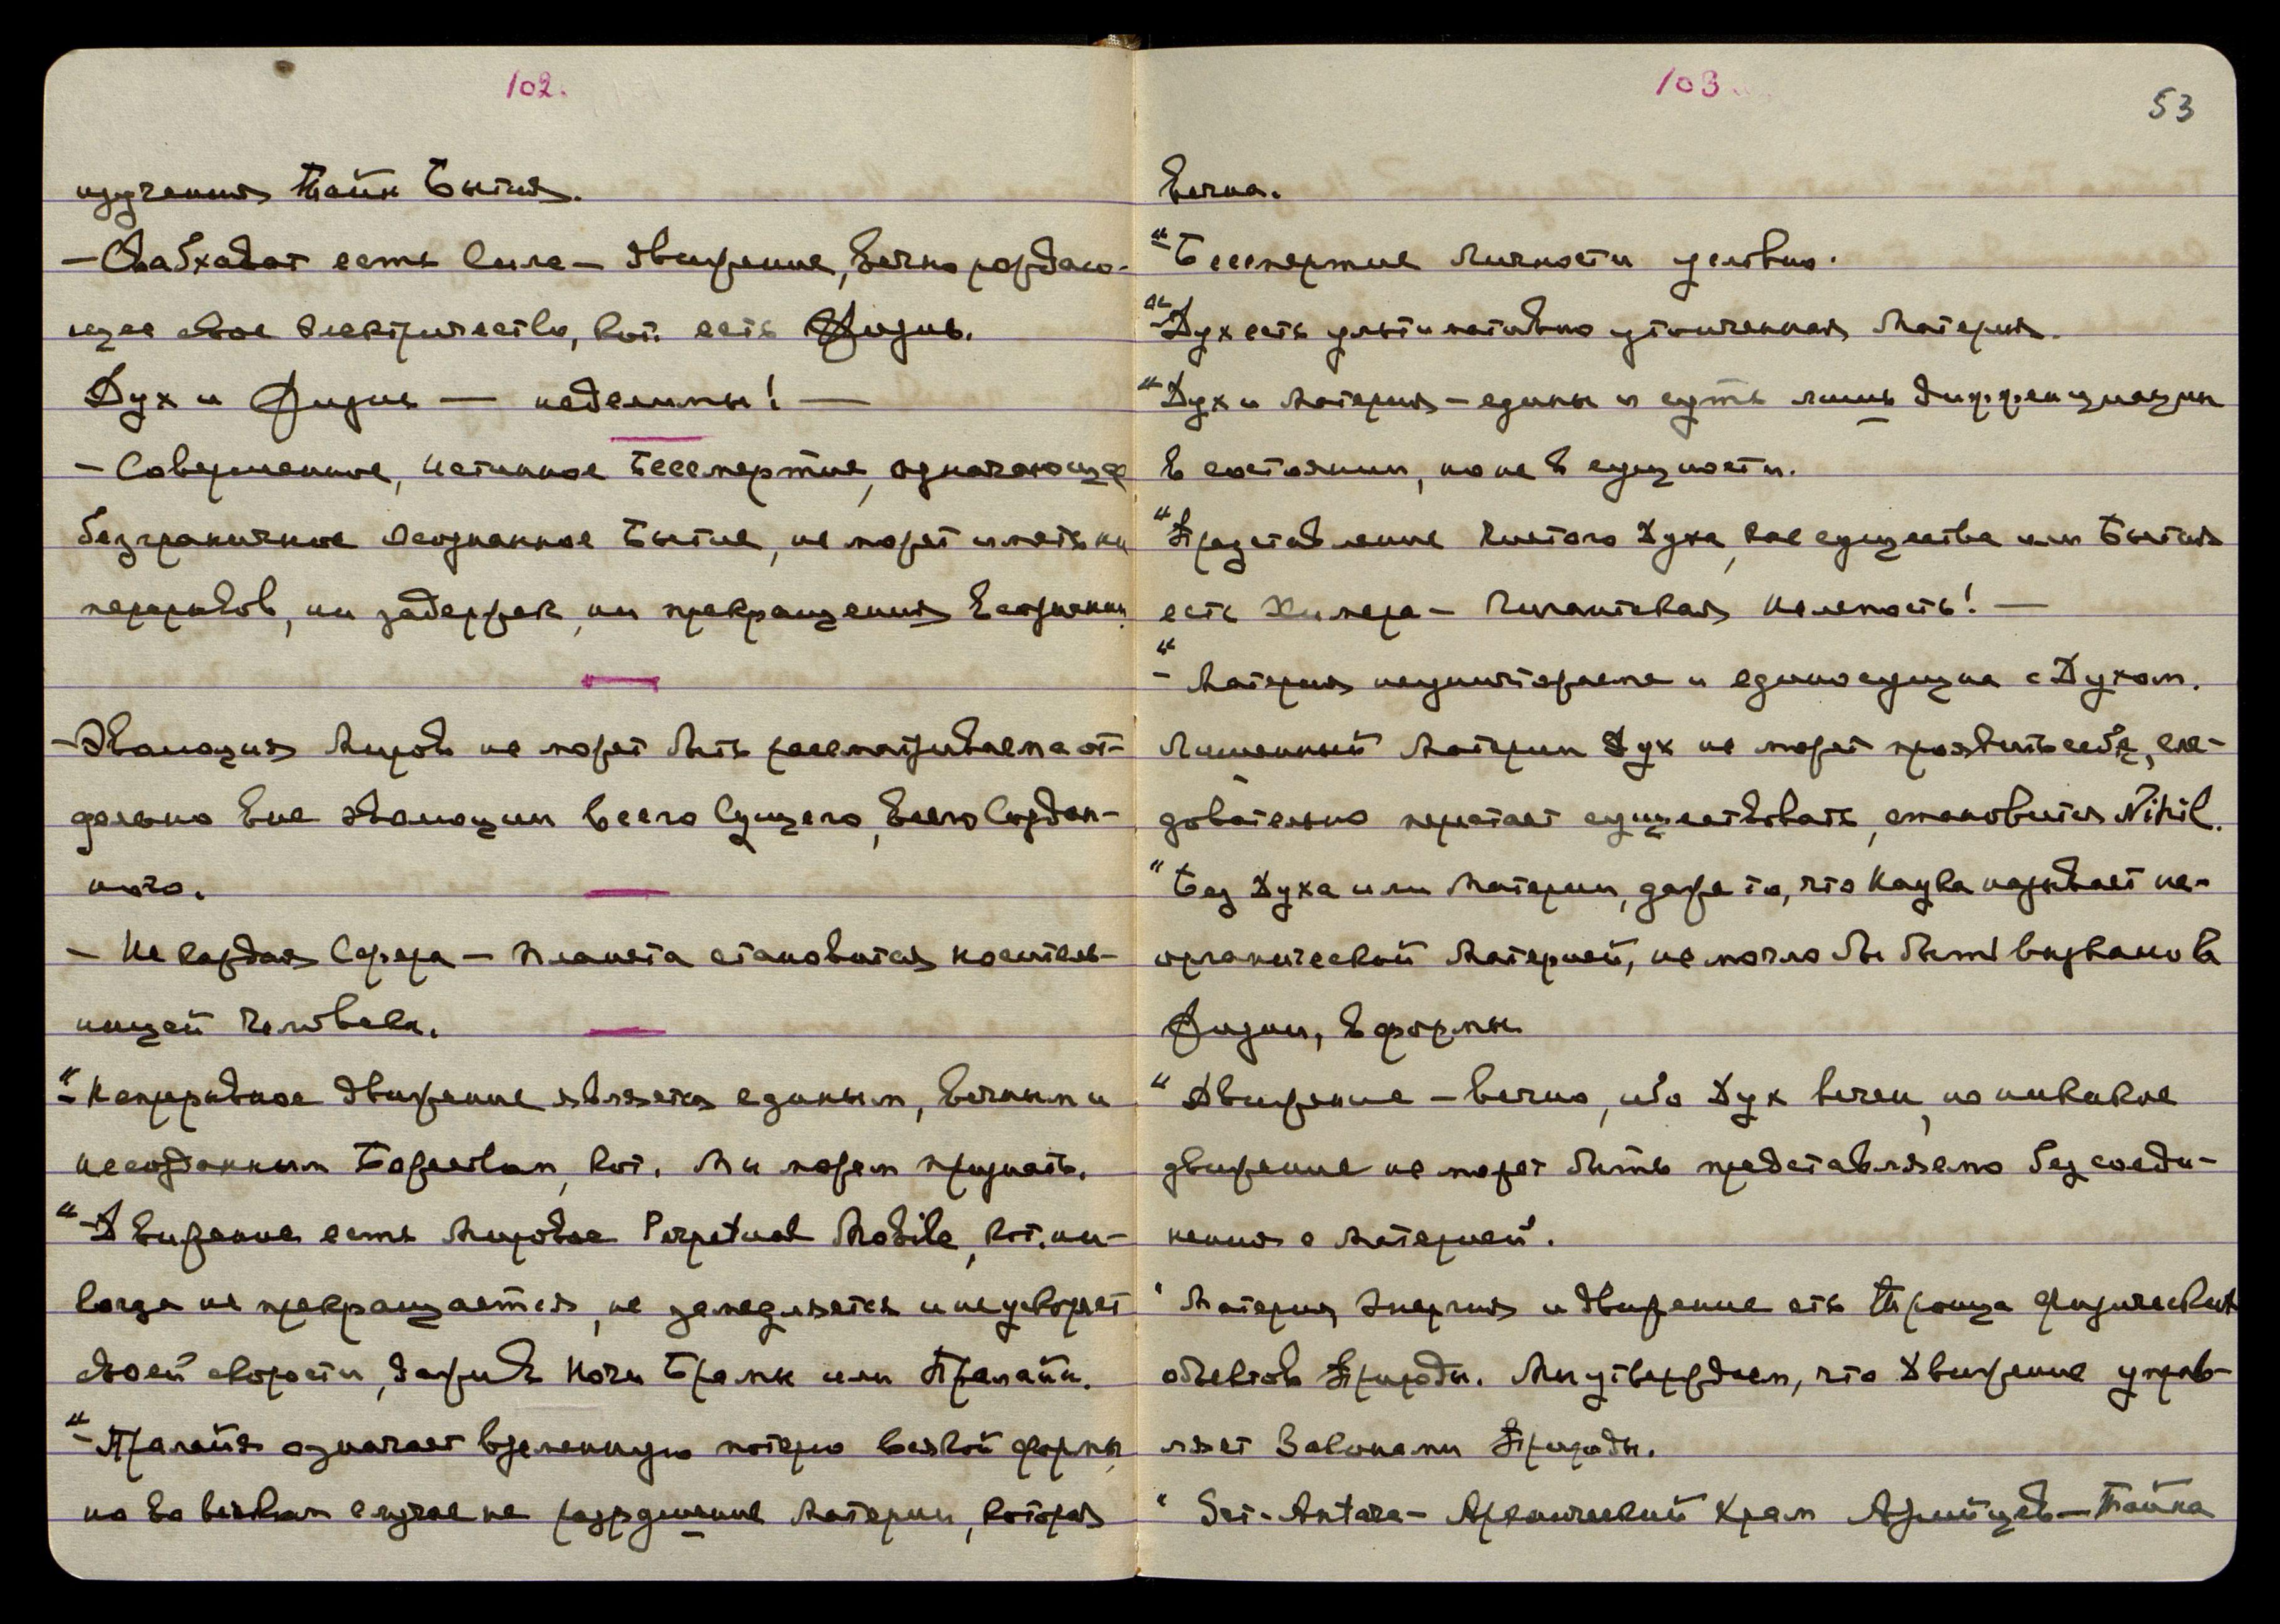 102.
изучения Тайн Бытия.
— Свабхават есть Сила — движение, вечно рождаю-
щее свое Электричество, кот. есть Жизнь.
Дух и Жизнь — неделимы! —
— Совершенное, Истинное Бессмертие, означающее
безграничное осознанное Бытие, не может иметь ни
перерывов, ни задержек, ни прекращения в сознании.
— Эволюция Миров не может быть рассматриваема от-
дельно вне эволюции всего Сущего, всего Создан-
ного.
— Не каждая Сфера — планета становится носитель-
ницей Человека.
"— Непрерывное движение является единым, вечным и
несозданным Божеством, кот. Мы можем признать.
"— Движение есть Мировое Perpetual Mobile, кот. ни-
когда не прекращается, не замедляется и не ускоряет
своей скорости, даже в Ночи Брамы или Пралайи.
"— Пралайя означает временную потерю всякой формы,
но во всяком случае не разрушение Материи, которая
103.
53
вечна.
"— Бессмертие личности условно.
"— Дух есть ультимативно утонченная Материя.
"— Дух и Материя — едины и суть лишь дифференциации
в состоянии, но не в сущности.
" Представление Чистого Духа, как существа или Бытия
есть Химера — Гигантская Нелепость! —
"— Материя неуничтожаема и единосущна с Духом.
Лишенный Материи Дух не может проявить себя, сле-
довательно перестает существовать, становится Nihil.
" Без Духа или Материи, даже то, что Наука называет не-
органической Материей, не могло бы быть вызвано в
Жизни, в формы.
" Движение — вечно, ибо Дух вечен, но никакое
движение не может быть представляемо без соеди-
нения с Материей.
" Материя, Энергия и движение есть Троица физических
объектов Природы. Мы утверждаем, что Движение управ-
ляет Законами Природы.
" Sei-Antara — Арханический Храм Арийцев — Тайна